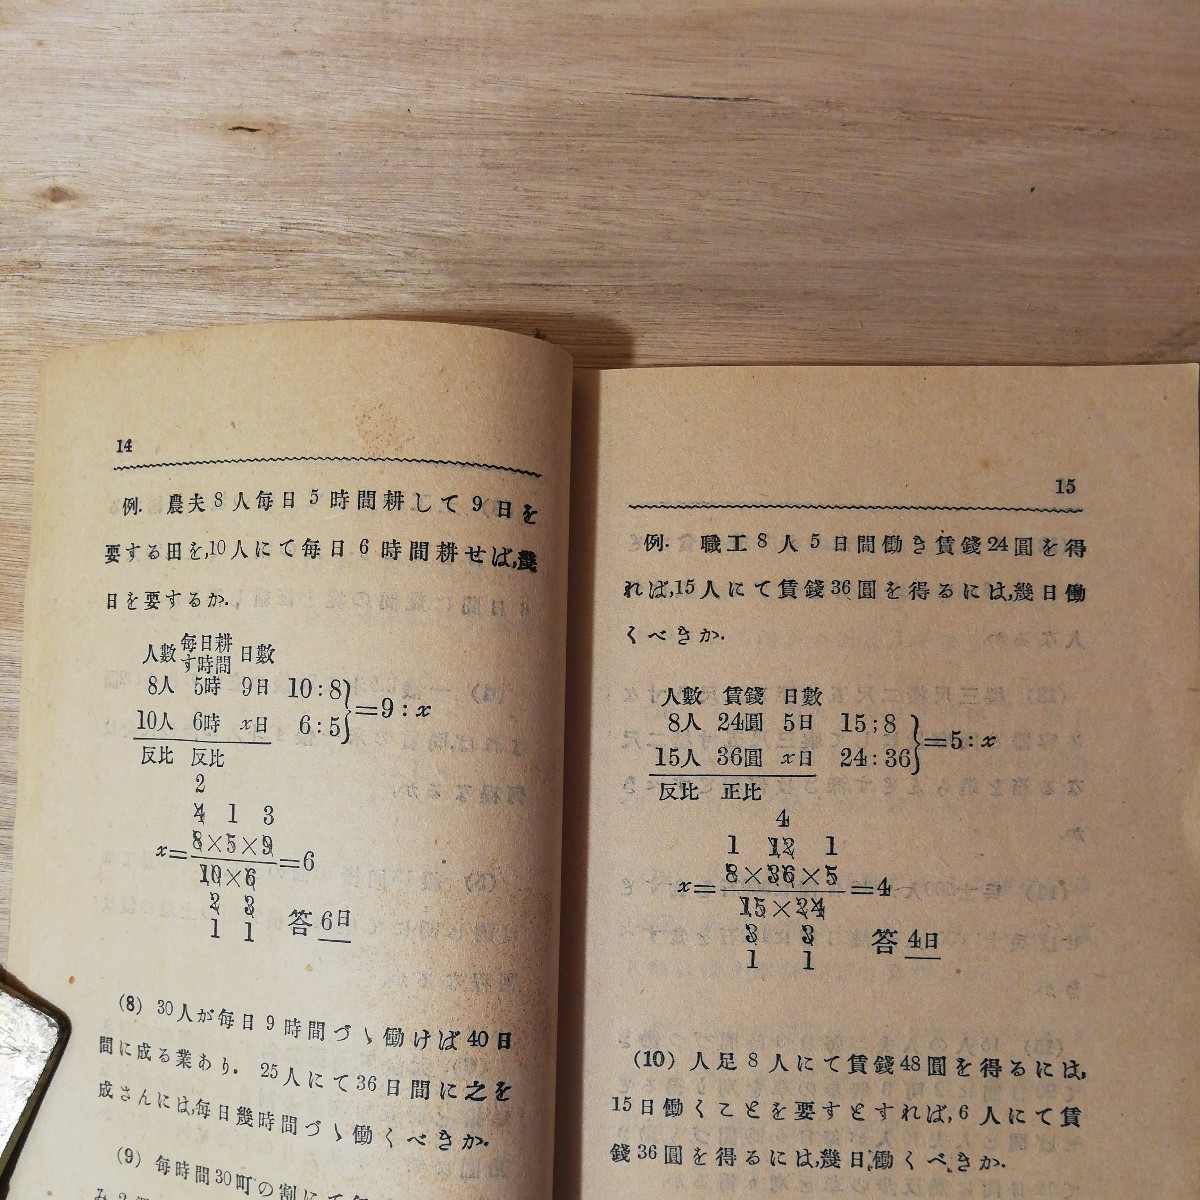 14
例. 農夫8人每日5時間耕して9日を
要する田を,10人にて每日6時間耕せば,幾
日を要するか.
人數 每日耕す時間 日數
8人 5時 9日 10:8
10人 6時 x日 6:5
}=9:x
反比 反比
2
4 1 3
8×5×9
x=――=6
10×6
2 3
1 1 答 6日
(8) 30人が每日9時間づゝ働けば40日
間に成る業あり. 25人にて36日間に之を
成さんには,每日幾時間づゝ働くべきか.
(9) 每時間30町の割にて
み2
15
例. 職工8人5日間働き賃錢24圓を得
れば,15人にて賃錢36圓を得るには,幾日働
くべきか.
人數 賃錢 日數
8人 24圓 5日 15;8
15人 36圓 x日 24:36
}=5:x
反比 正比
4
1 12 1
8×36×5
x=――=4
15×24
3 3
1 1 答 4日
(10) 人足8人にて賃錢48圓を得るには,
15日働くことを要すとすれば,6人にて賃
錢36圓を得るには,幾日働くべきか.